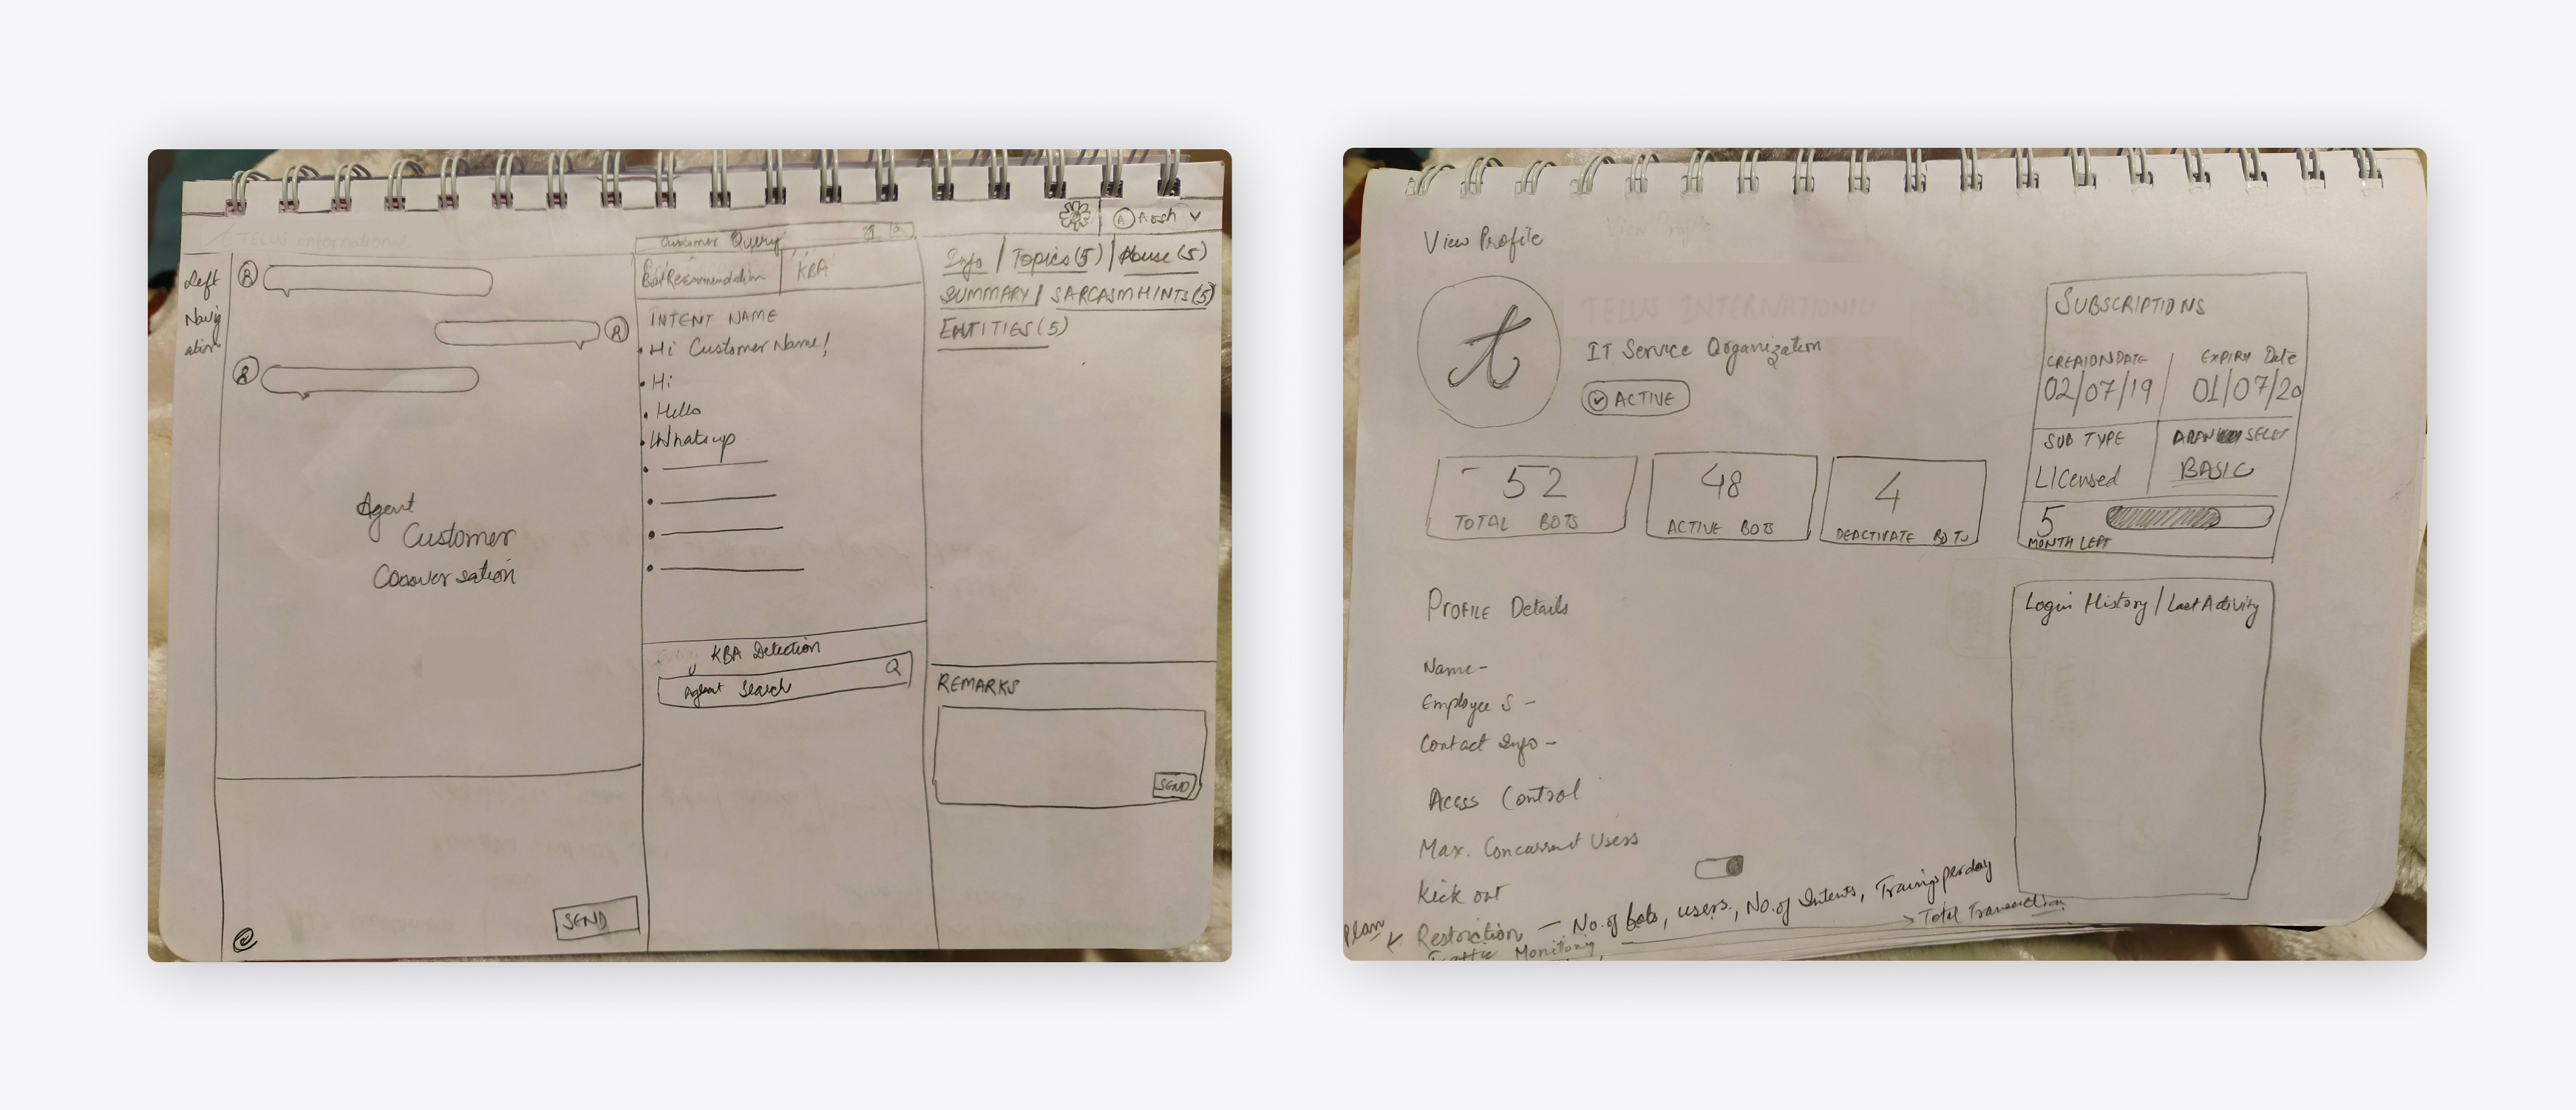 TELUS International
Left
Navig
ation
Agent
Customer
SEND
Customer Query
Bot Recommendation
KBA
INTENT NAME
Hi Customer Name!
Hi
Hello
Whatsup
KBA Detection
Agent Search
Info | Topics (5) | Abuse (5)
SUMMARY | SARCASM HINTS (5)
ENTITIES (5)
REMARKS
SEND
View Profile
t
TELUS INTERNATIONAL
IT Service Organization
ACTIVE
52
TOTAL BOTS
48
ACTIVE BOTS
4
DEACTIVATE BOTS
SUBSCRIPTIONS
CREAIONDATE
02/07/19
EXPIRY Date
01/07/20
SUB TYPE
Licensed
BASIC
5
MONTH LEFT
PROFILE Details
Name -
Employee S -
Contact Info -
Acess Control
Max. Concurrent Users
Kick out
Plan
Restriction - No. of bots, users, No. of Intents, Trainigs per day
Total Transaction
Traffic Monitoring
Login History / Last Activity